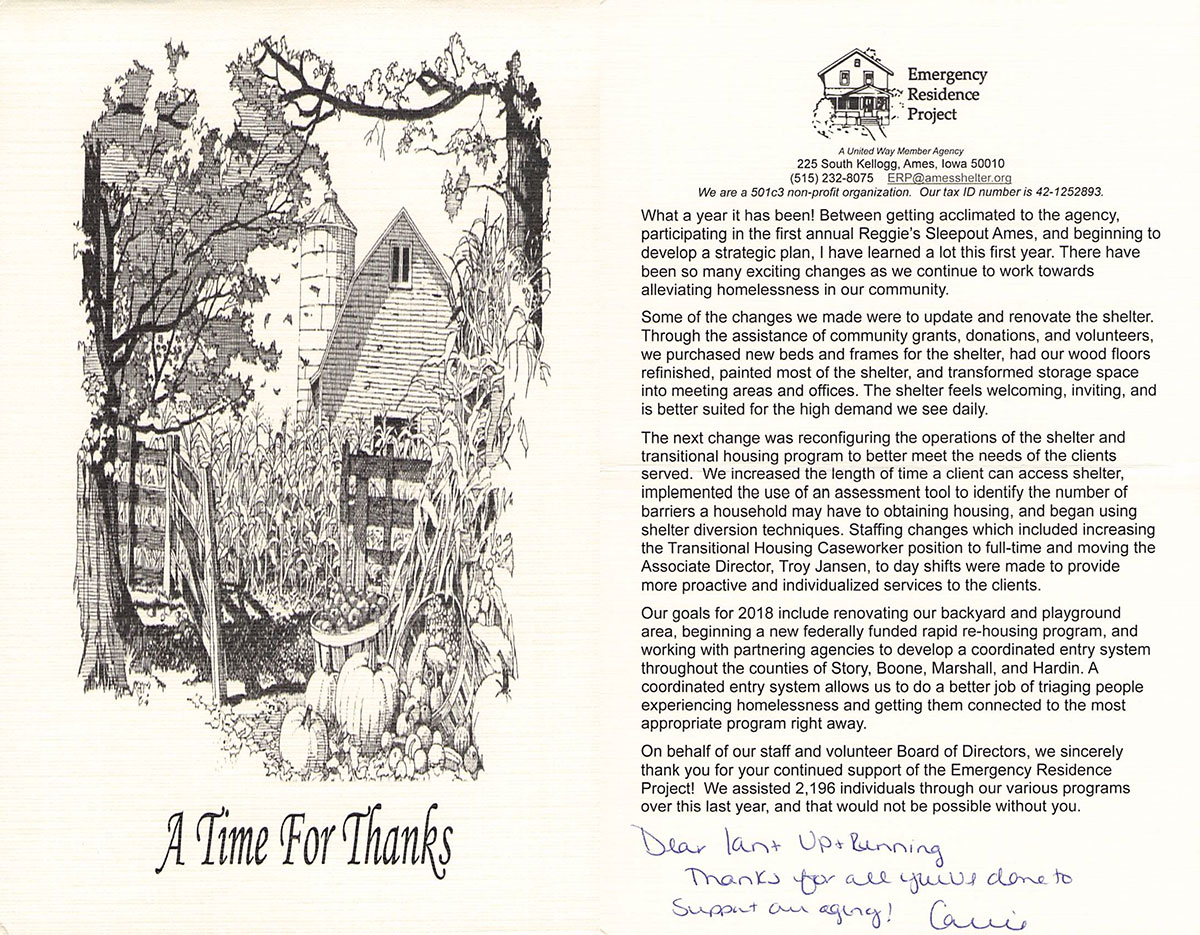 A Time For Thanks
Emergency
Residence
Project
A United Way Member Agency
225 South Kellogg, Ames, Iowa 50010
(515) 232-8075 ERP@amesshelter.org
We are a 501c3 non-profit organization. Our tax ID number is 42-1252893.
What a year it has been! Between getting acclimated to the agency,
participating in the first annual Reggie's Sleepout Ames, and beginning to
develop a strategic plan, I have learned a lot this first year. There have
been so many exciting changes as we continue to work towards
alleviating homelessness in our community.
Some of the changes we made were to update and renovate the shelter.
Through the assistance of community grants, donations, and volunteers,
we purchased new beds and frames for the shelter, had our wood floors
refinished, painted most of the shelter, and transformed storage space
into meeting areas and offices. The shelter feels welcoming, inviting, and
is better suited for the high demand we see daily.
The next change was reconfiguring the operations of the shelter and
transitional housing program to better meet the needs of the clients
served. We increased the length of time a client can access shelter,
implemented the use of an assessment tool to identify the number of
barriers a household may have to obtaining housing, and began using
shelter diversion techniques. Staffing changes which included increasing
the Transitional Housing Caseworker position to full-time and moving the
Associate Director, Troy Jansen, to day shifts were made to provide
more proactive and individualized services to the clients.
Our goals for 2018 include renovating our backyard and playground
area, beginning a new federally funded rapid re-housing program, and
working with partnering agencies to develop a coordinated entry system
throughout the counties of Story, Boone, Marshall, and Hardin. A
coordinated entry system allows us to do a better job of triaging people
experiencing homelessness and getting them connected to the most
appropriate program right away.
On behalf of our staff and volunteer Board of Directors, we sincerely
thank you for your continued support of the Emergency Residence
Project! We assisted 2,196 individuals through our various programs
over this last year, and that would not be possible without you.
Dear Ian + Up + Running
Thanks for all you've done to
Support our agency! Carrie